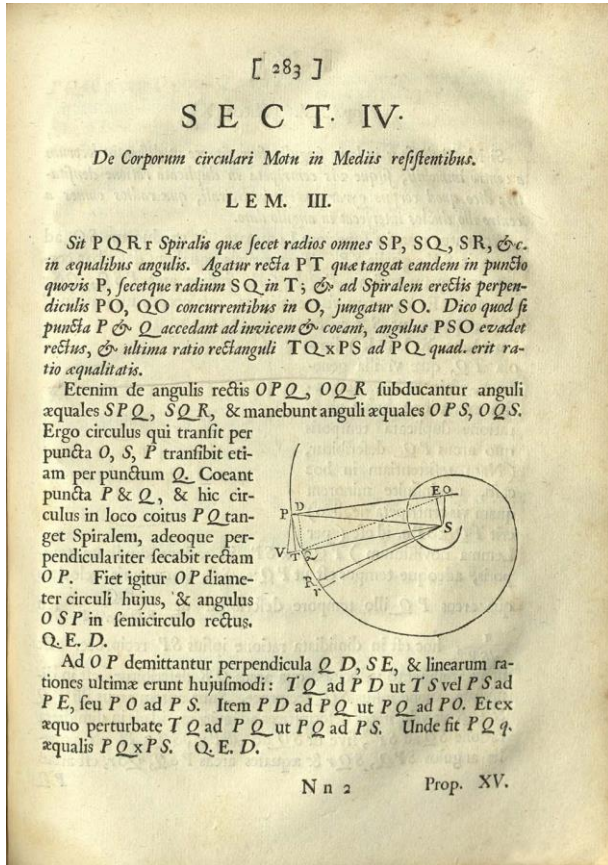 [ 283 ]
SECT. IV.
De Corporum circulari Motu in Mediis resistentibus.
LEM. III.
Sit PQRr Spiralis quæ secet radios omnes SP, SQ, SR, &c.
in æqualibus angulis. Agatur recta PT quæ tangat eandem in puncto
quovis P, secetque radium SQ in T; & ad Spiralem erectis perpen-
diculis PO, QO concurrentibus in O, jungatur SO. Dico quod si
puncta P & Q accedant ad invicem & coeant, angulus PSO evadet
rectus, & ultima ratio rectanguli TQxPS ad PQ quad. erit ra-
tio æqualitatis.
Etenim de angulis rectis OPQ, OQR subducantur anguli
æquales SPQ, SQR, & manebunt anguli æquales OPS, OQS.
Ergo circulus qui transit per
puncta O, S, P transibit eti-
am per punctum Q. Coeant
puncta P & Q, & hic cir-
culus in loco coitus PQ tan-
get Spiralem, adeoque per-
pendiculariter secabit rectam
OP. Fiet igitur OP diame-
ter circuli hujus, & angulus
OSP in semicirculo rectus.
Q. E. D.
P D E O S V T Q R r
Ad OP demittantur perpendicula QD, SE, & linearum ra-
tiones ultimæ erunt hujusmodi: TQ ad PD ut TS vel PS ad
PE, seu PO ad PS. Item PD ad PQ ut PQ ad PO. Et ex
æquo perturbate TQ ad PQ ut PQ ad PS. Unde fit PQ q.
æqualis PQxPS. Q. E. D.
Nn 2
Prop. XV.